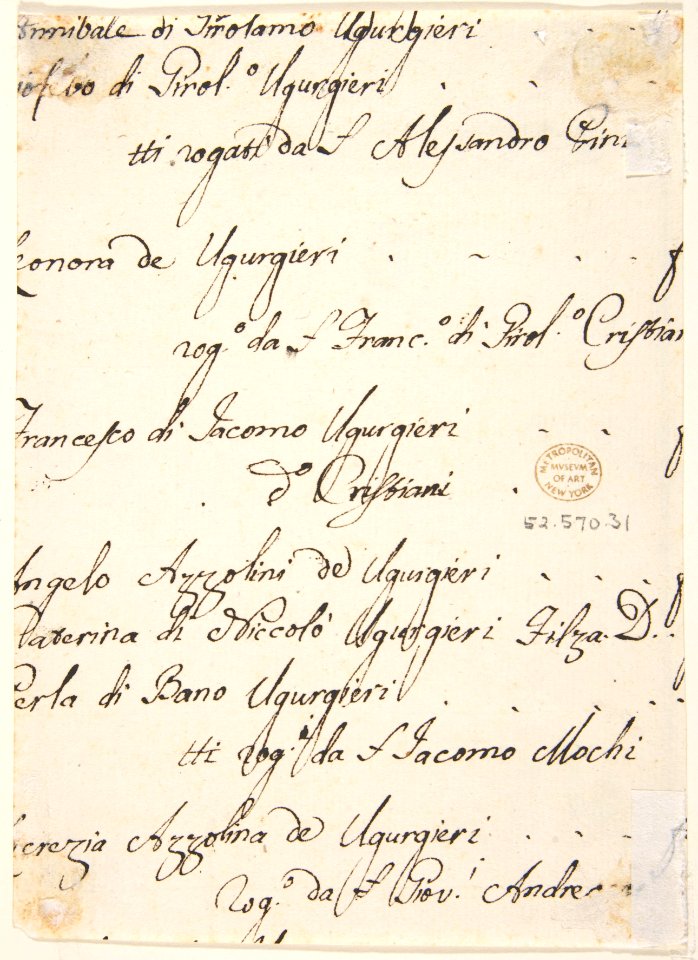 Annibale di Girolamo Ugurgieri
di Girol.º Ugurgieri
tti rogati da S Alessandro
Leonora de Ugurgieri
rog.º da S Franc.º di Girol.º Cristiani
Francesco di Iacomo Ugurgieri
dº Cristiani
METROPOLITAN MVSEVM OF ART NEW YORK
52.570.31
Angelo Azzolini de Ugurgieri
Caterina di Niccolò Ugurgieri Filza. D.
Perla di Bano Ugurgieri
tti rog.i da S Iacomo Mochi
Lucrezia Azzolina de Ugurgieri
Rog.º da S Giov.i Andrea